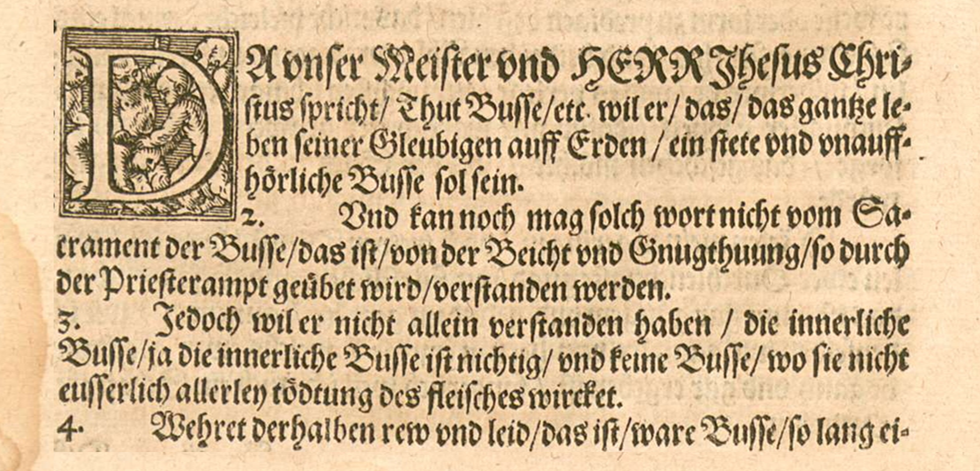 DA vnser Meister vnd HERR Jhesus Chri-
stus spricht/ Thut Busse/etc. wil er/ das/ das gantze le-
ben seiner Gleubigen auff Erden / ein stete vnd vnauff-
hörliche Busse sol sein.
2. Vnd kan noch mag solch wort nicht vom Sa-
crament der Busse/das ist/von der Beicht vnd Gnugthuung/so durch
der Priesterampt geübet wird/verstanden werden.
3. Jedoch wil er nicht allein verstanden haben / die innerliche
Busse/ja die innerliche Busse ist nichtig/ vnd keine Busse/ wo sie nicht
eusserlich allerley tödtung des fleisches wircket.
4. Wehret derhalben rew vnd leid/das ist/ware Busse/so lang ei-